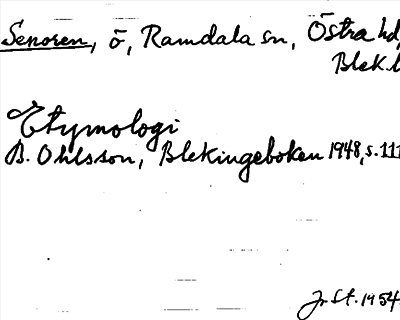 Senoren, ö, Ramdala sn, Östra hd,
Blek. l
Etymologi
B. Ohlsson, Blekingeboken 1948, s. 111
Jr St. 1954